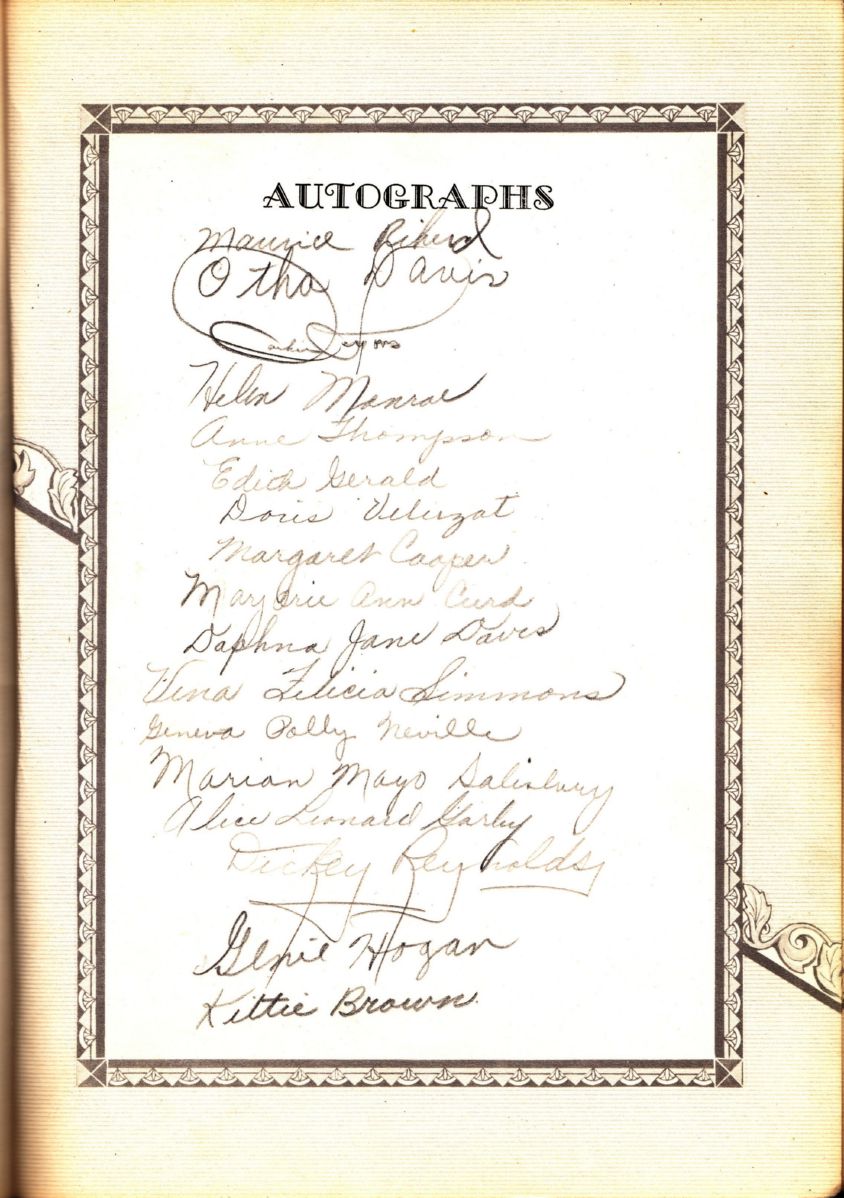 AUTOGRAPHS
Maurice
Otha Davis
Helen Monroe
Anne Thompson
Edith Gerald
Doris
Margaret Cooper
Marjorie Ann Curd
Daphna Jane Davis
Vena Felicia Simmons
Geneva Polly Neville
Marian Mayo Salisbury
Alice Leonard
Dickey Reynolds
Genie Hogan
Kittie Brown